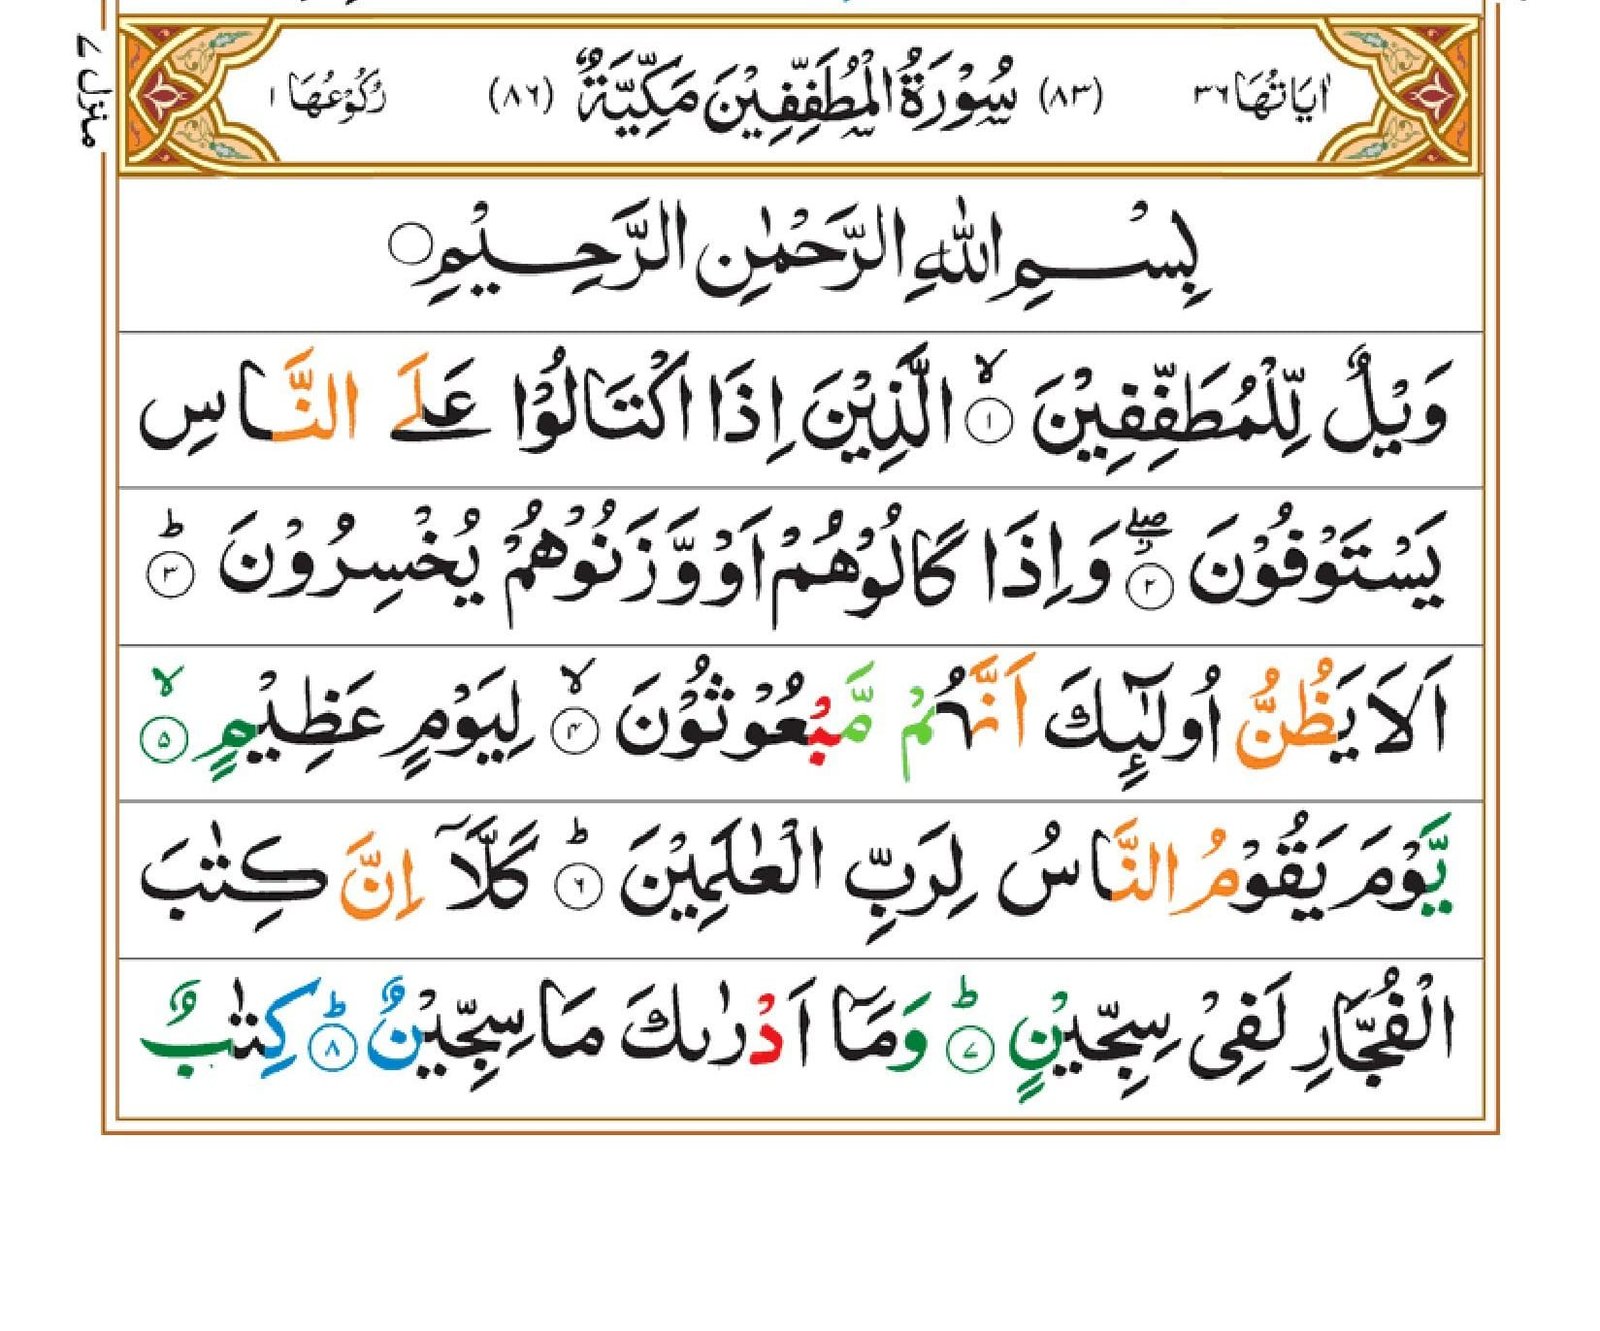 منزل ٧
اٰيَاتُهَا ٣٦ (٨٣) سُوْرَةُ الْمُطَفِّفِيْنَ مَكِّيَّةٌ (٨٦) رُكُوْعُهَا ١
بِسْمِ اللّٰهِ الرَّحْمٰنِ الرَّحِيْمِ ○
وَيْلٌ لِّلْمُطَفِّفِيْنَ ۙ‏ ١ الَّذِيْنَ اِذَا اكْتَالُوْا عَلَى النَّاسِ
يَسْتَوْفُوْنَ ۖ ٢ وَاِذَا كَالُوْهُمْ اَوْ وَّزَنُوْهُمْ يُخْسِرُوْنَ ؕ ٣
اَلَا يَظُنُّ اُولٰٓئِكَ اَنَّهُمْ مَّبْعُوْثُوْنَ ۙ ٤ لِيَوْمٍ عَظِيْمٍ ۙ ٥
يَّوْمَ يَقُوْمُ النَّاسُ لِرَبِّ الْعٰلَمِيْنَ ؕ ٦ كَلَّاۤ اِنَّ كِتٰبَ
الْفُجَّارِ لَفِيْ سِجِّيْنٍ ؕ ٧ وَمَاۤ اَدْرٰىكَ مَا سِجِّيْنٌ ؕ ٨ كِتٰبٌ